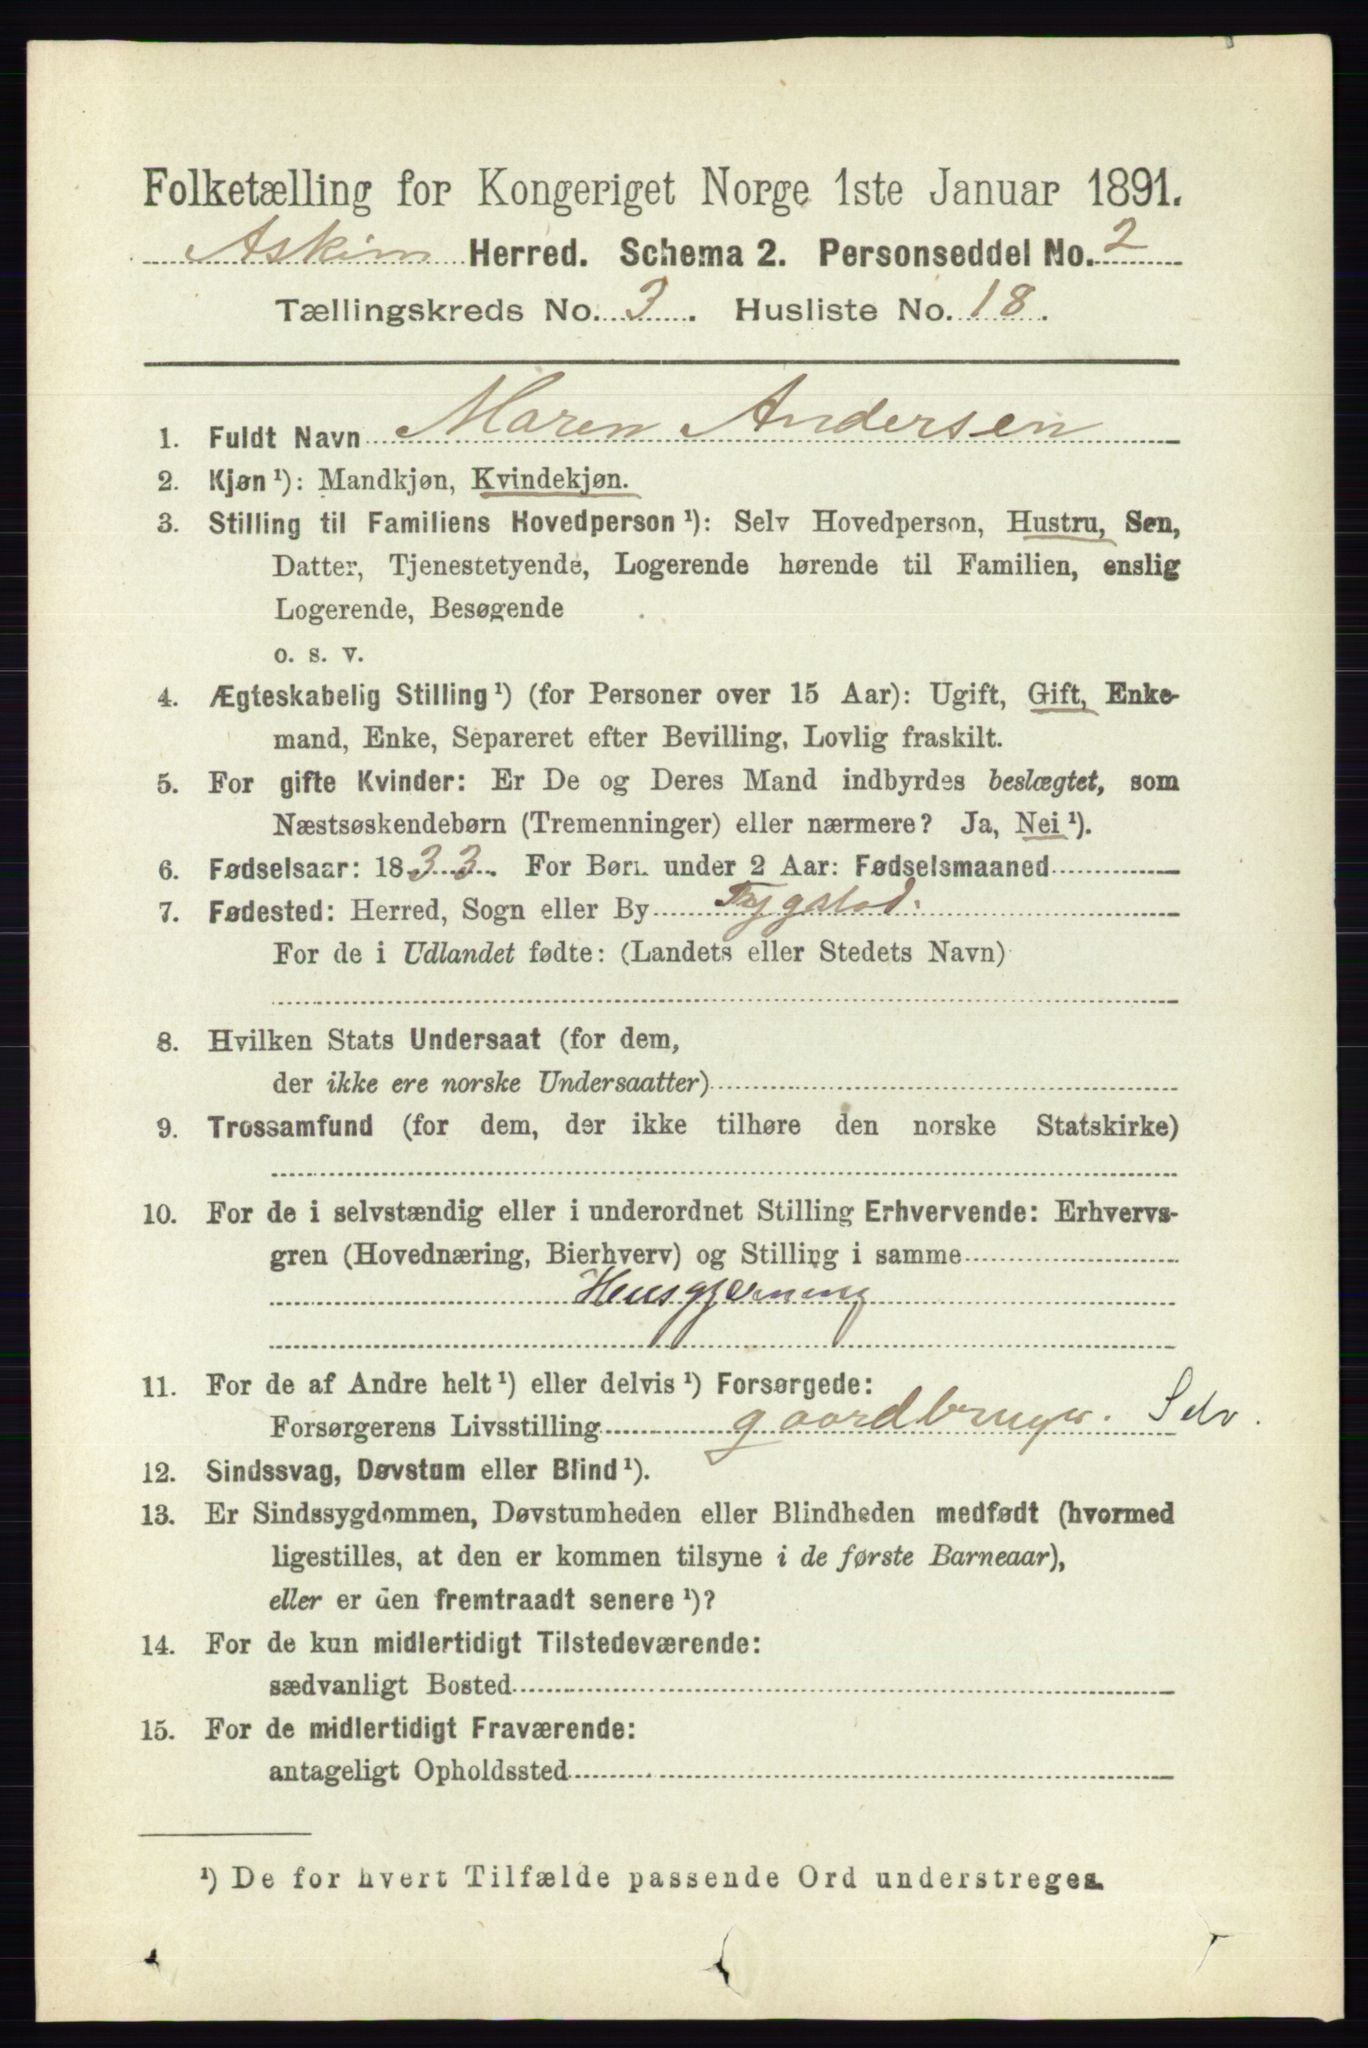 Folketælling for Kongeriget Norge 1ste Januar 1891.
Askim Herred. Schema 2. Personseddel No. 2
Tællingskreds No. 3. Husliste No. 18.
1. Fuldt Navn Maren Andersen
2. Kjøn ¹): Mandkjøn, Kvindekjøn.
3. Stilling til Familiens Hovedperson ¹): Selv Hovedperson, Hustru, Søn,
Datter, Tjenestetyende, Logerende hørende til Familien, enslig
Logerende, Besøgende
o. s. v.
4. Ægteskabelig Stilling ¹) (for Personer over 15 Aar): Ugift, Gift, Enke-
mand, Enke, Separeret efter Bevilling, Lovlig fraskilt.
5. For gifte Kvinder: Er De og Deres Mand indbyrdes beslægtet, som
Næstsøskendebørn (Tremenninger) eller nærmere? Ja, Nei ¹).
6. Fødselsaar: 1833. For Børn under 2 Aar: Fødselsmaaned
7. Fødested: Herred, Sogn eller By Trygstad.
For de i Udlandet fødte: (Landets eller Stedets Navn)
8. Hvilken Stats Undersaat (for dem,
der ikke ere norske Undersaatter)
9. Trossamfund (for dem, der ikke tilhøre den norske Statskirke)
10. For de i selvstændig eller i underordnet Stilling Erhvervende: Erhvervs-
gren (Hovednæring, Bierhverv) og Stilling i samme
Husgjerning
11. For de af Andre helt ¹) eller delvis ¹) Forsørgede:
Forsørgerens Livsstilling gaardbruger. Selv.
12. Sindssvag, Døvstum eller Blind ¹).
13. Er Sindssygdommen, Døvstumheden eller Blindheden medfødt (hvormed
ligestilles, at den er kommen tilsyne i de første Barneaar),
eller er den fremtraadt senere ¹)?
14. For de kun midlertidigt Tilstedeværende:
sædvanligt Bosted
15. For de midlertidigt Fraværende:
antageligt Opholdssted
¹) De for hvert Tilfælde passende Ord understreges.